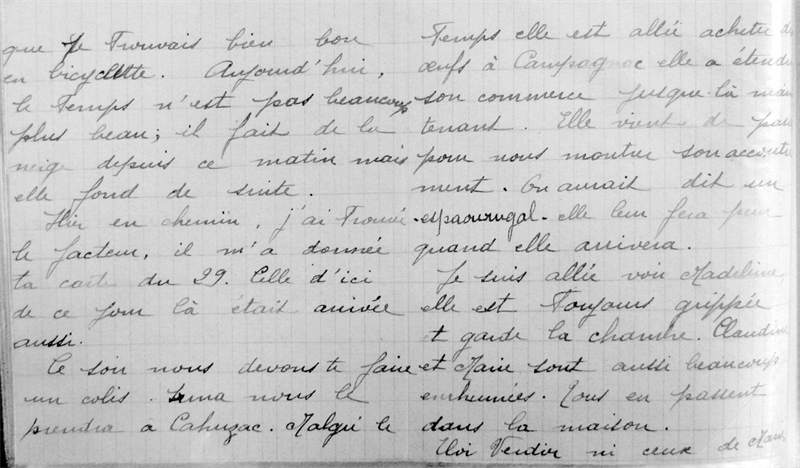 que je Trouvais bien bon
en bicyclette. Aujourd'hui,
le Temps n'est pas beaucoup
plus beau; il fait de la
neige depuis ce matin mais
elle fond de suite.
Hier en chemin, j'ai Trouvé
le facteur, il m'a donnée
ta carte du 29. Celle d'ici
de ce jour là était arrivée
aussi.
Ce soir nous devons te faire
un colis. nous le
prendra à Cahuzac. Malgré le
Temps elle est allée acheter d
œufs à Campagnac elle a étendu
son commerce jusque-là main
tenant. Elle vient de pass
pour nous montrer son accoutre
ment. On aurait dit un
espaourugal. elle leur fera peur
quand elle arrivera.
Je suis allée voir Madeleine,
elle est Toujours grippée
et garde la chambre. Claudine
et Marie sont aussi beaucoup
enrhumées. Tous en passent
dans la maison.
ni ceux de